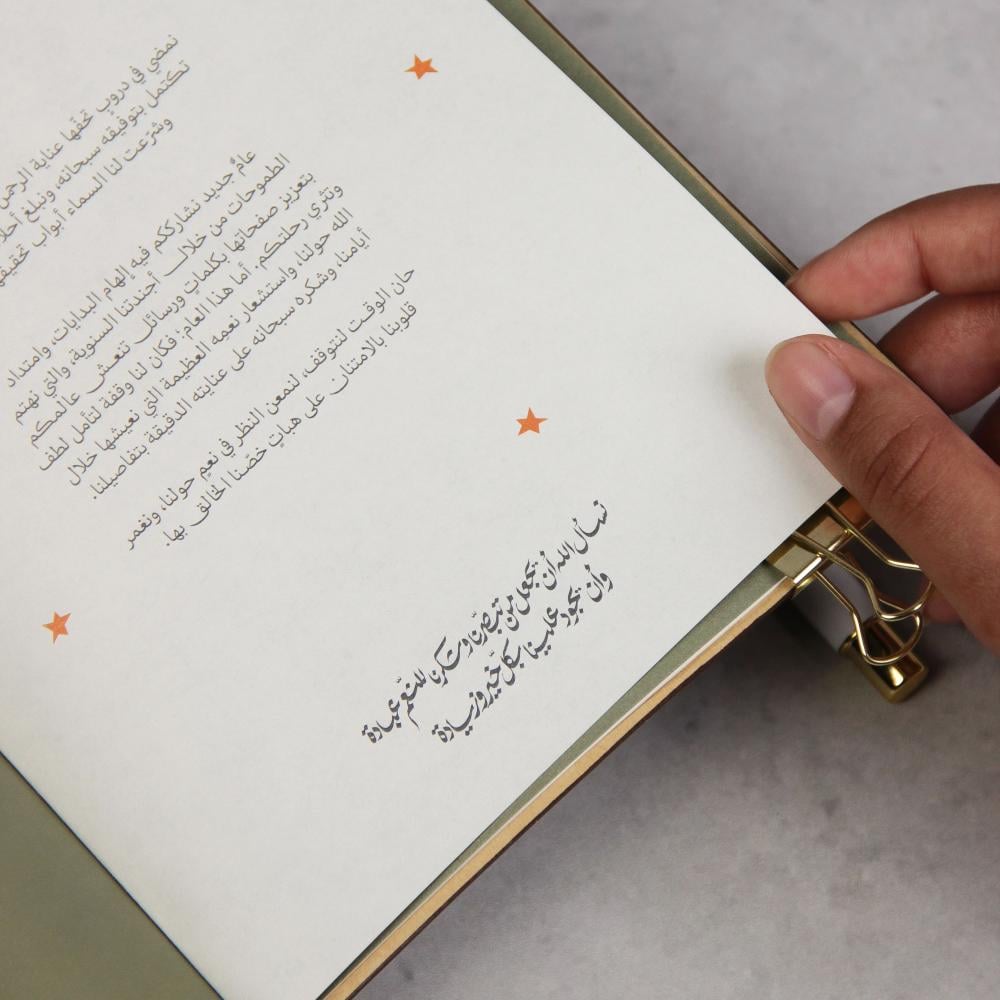 نمضي في دروبٍ تحفّها عناية الرحمن
تكتمل بتوفيقه سبحانه، ونبلغ
وشرّعت لنا السماء أبواب
عامٌ جديد نشارككم فيه إلهام البدايات، وامتداد
الطموحات من خلال أجندتنا السنوية، والتي نهتم
بتعزيز صفحاتها بكلماتٍ ورسائل تنعش عالمكم
وتثري رحلتكم. أما هذا العام؛ فكان لنا وقفة لتأمل لطف
الله حولنا، واستشعار نعمه العظيمة التي نعيشها خلال
أيامنا، وشكره سبحانه على عنايته الدقيقة بتفاصيلنا.
حان الوقت لنتوقف، لنمعن النظر في نعمٍ حولنا، ونغمر
قلوبنا بالامتنان على هباتٍ خصّنا الخالق بها.
نسأل الله أن يجعل من تبصّرنا وشكرنا للنعم عبادة
وأن يجود علينا بكل خيرٍ وزيادة